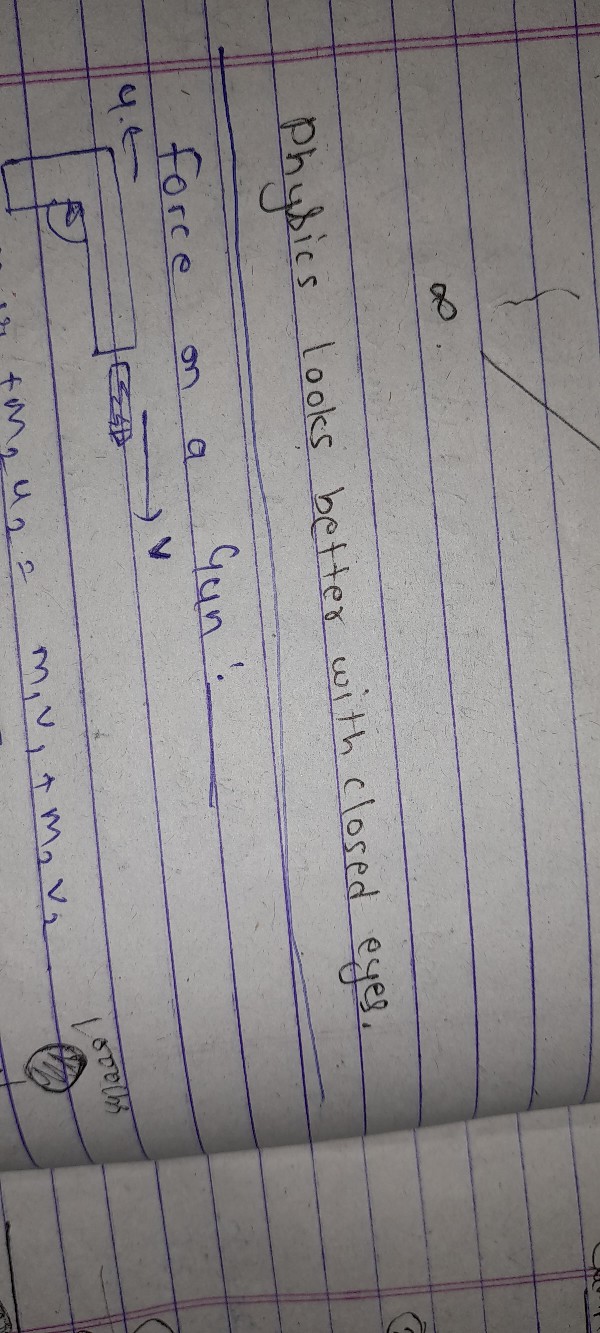 ∞
Physics looks better with closed eyes.
force on a Gun:
v
+ m₂u₂ = m₁v₁ + m₂v₂